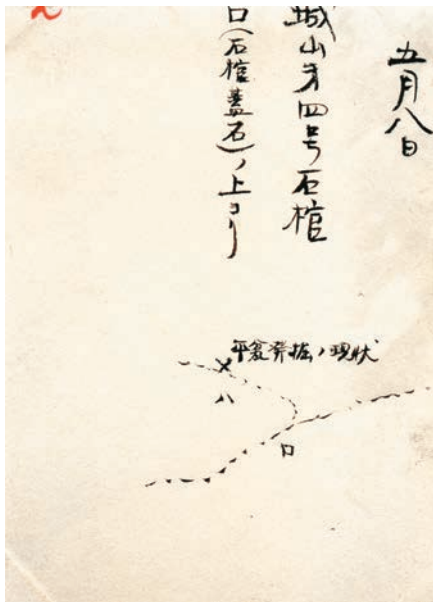 五月八日
城山才四号石棺
ロ(石棺蓋石)ノ上ヨリ
発掘ノ現状
ハ
ロ